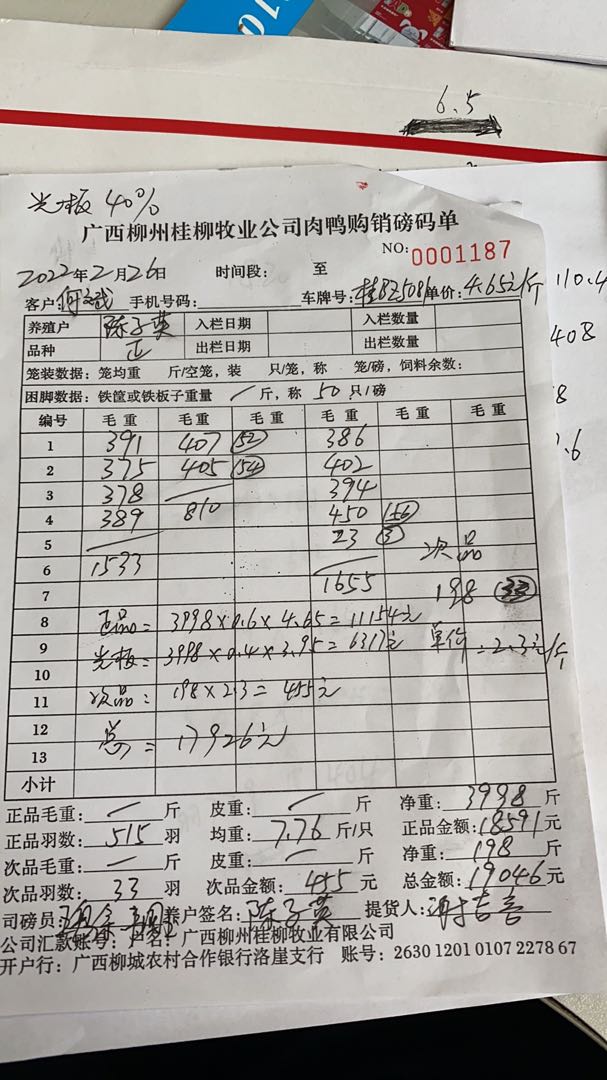 6.5
光板 40%
广西柳州桂柳牧业公司肉鸭购销磅码单
NO: 0001187
2022年2月26日 时间段: 至
客户: 手机号码: 车牌号: 单价: 4.65元/斤
110.4
408
养殖户 陈子英 入栏日期 入栏数量
品种 正 出栏日期 出栏数量
笼装数据: 笼均重 斤/空笼, 装 只/笼, 称 笼/磅, 饲料余数:
困脚数据: 铁筐或铁板子重量 / 斤, 称 50 只/磅
编号 毛重 毛重 毛重 毛重 毛重 毛重
1 391 407 52 386
2 375 405 54 402
3 378 394
4 389 810 450 156
5 23 3 次品
6 1533
7 1655 198 33
8 正品= 3998×0.6×4.65=11154元
9 光板= 3998×0.4×3.95=6317元 单价=2.3元/斤
10
11 次品: 198×2.3=455元
12 总=17926元
13
小计
正品毛重: / 斤 皮重: / 斤 净重: 3998 斤
正品羽数: 515 羽 均重: 7.76 斤/只 正品金额: 18591 元
次品毛重: / 斤 皮重: / 斤 净重: 198 斤
次品羽数: 33 羽 次品金额: 455 元 总金额: 19046 元
司磅员: 养户签名: 陈子英 提货人:
公司汇款账号: 户名: 广西柳州桂柳牧业有限公司
开户行: 广西柳城农村合作银行洛崖支行 账号: 2630 1201 0107 2278 67